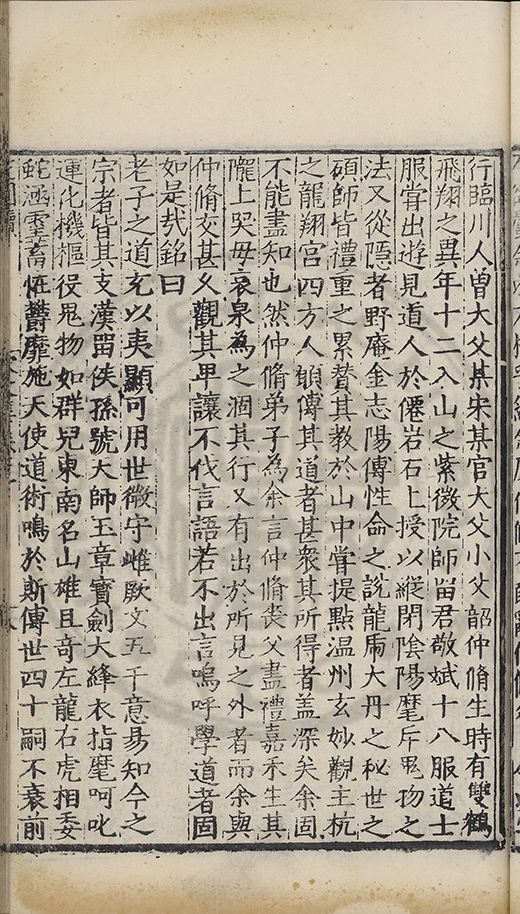 行臨川人曽大父某宋某官大父小父韶仲脩生時有雙鶴
飛翔之異年十二入山之紫微院師畱君敬斌十八服道士
服甞出遊見道人於僊岩石上授以縱閉陰陽麾斥鬼物之
法又從隱者野庵金志陽傳性命之説龍虎大丹之秘世之
碩師皆禮重之累賛其教於山中甞提點温州玄妙觀主杭
之龍翔宫四方人頥傳其道者甚衆其所得者盖深矣余固
不能盡知也然仲脩弟子為余言仲脩喪父盡禮嘉禾生其
隴上哭毋哀泉為之涸其行又有出於所見之外者而余與
仲脩交甚乆觀其卑讓不伐言語若不出言嗚呼學道者固
如是㢤銘曰
老子之道充以夷顯可用世微守雌厥文五千意昜知今之
宗者皆其支漢畱侯孫號大師王章寳劍大絳衣指麾呵叱
運化機樞役鬼物如群兒東南名山雄且竒左龍右虎相委
蛇涵靈蓄恠欝靡施天使道術鳴於斯傳世四十嗣不衰前